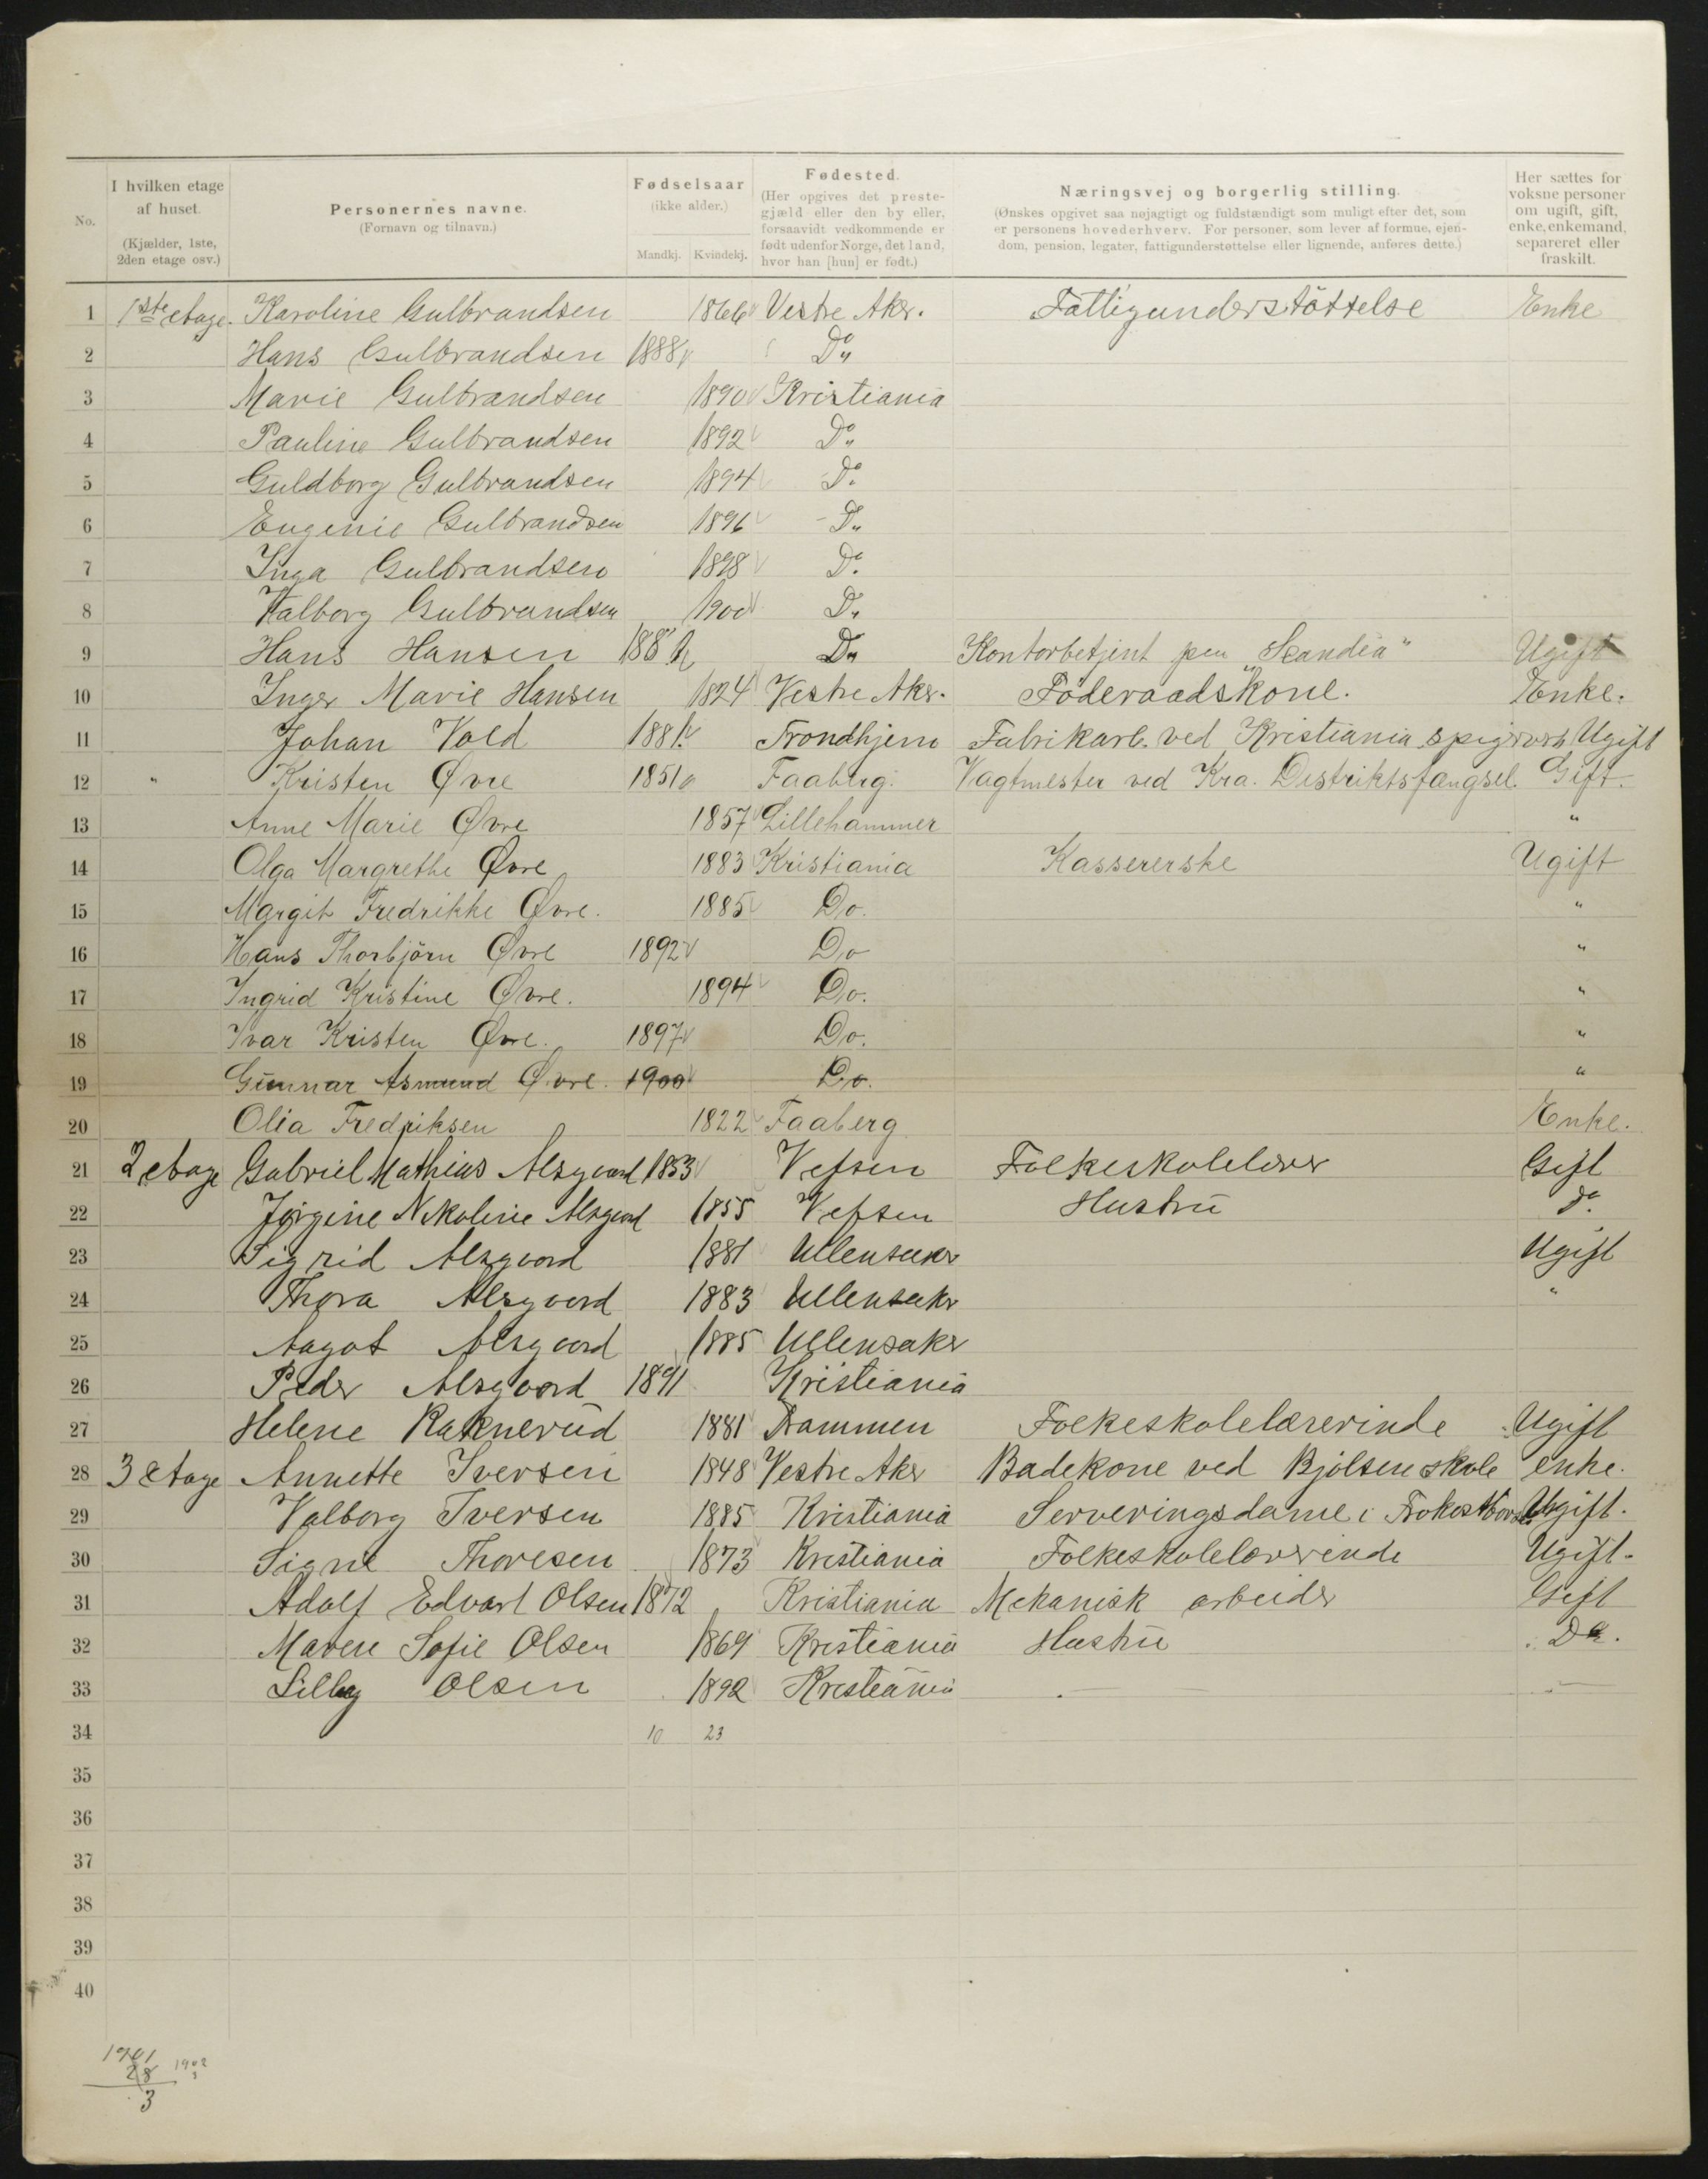 No.
I hvilken etage af huset. (Kjælder, 1ste, 2den etage osv.)
Personernes navne. (Fornavn og tilnavn.)
Fødselsaar (ikke alder.) Mandkj. Kvindekj.
Fødested. (Her opgives det prestegjæld eller den by eller, forsaavidt vedkommende er født udenfor Norge, det land, hvor han [hun] er født.)
Næringsvej og borgerlig stilling. (Ønskes opgivet saa nøjagtigt og fuldstændigt som muligt efter det, som er personens hovederhverv. For personer, som lever af formue, ejendom, pension, legater, fattigunderstøttelse eller lignende, anføres dette.)
Her sættes for voksne personer om ugift, gift, enke, enkemand, separeret eller fraskilt.
1 1ste etage. Karoline Gulbrandsen 1866 Vestre Aker. Fattigunderstöttelse Enke
2 Hans Gulbrandsen 1888 Do
3 Marie Gulbrandsen 1890 Kristiania
4 Pauline Gulbrandsen 1892 Do
5 Guldborg Gulbrandsen 1894 Do
6 Eugenie Gulbrandsen 1896 Do
7 Inga Gulbrandsen 1898 Do
8 Valborg Gulbrandsen 1900 Do
9 Hans Hansen Do Kontorbetjent paa "Scandia" Ugift
10 Inger Marie Hansen 1824 Vestre Aker. Föderaadskone. Enke.
11 Johan Vold 1881 Trondhjem Fabrikarb. ved Kristiania spigerverk Ugift
12 " Kristen Øvre 1851 Faaberg. Vagtmester ved Kra. Distriktsfængsel. Gift.
13 Anne Marie Øvre 1857 Lillehammer "
14 Olga Margrethe Øvre 1883 Kristiania Kassererske Ugift
15 Margit Fredrikke Øvre. 1885 Do. "
16 Hans Thorbjörn Øvre 1892 Do "
17 Ingrid Kristine Øvre. 1894 Do. "
18 Ivar Kristen Øvre. 1897 Do. "
19 Gunnar Asmund Øvre. 1900 Do. "
20 Olia Fredriksen 1822 Faaberg Enke.
21 2 etage Gabriel Mathias Alsgaard 1853 Vefsen Folkeskolelærer Gift
22 Jørgine Nikoline Alsgaard 1855 Vefsen Hustru Do
23 Sigrid Alsgaard 1881 Ullensaker Ugift
24 Thora Alsgaard 1883 Ullensaker "
25 Aagot Alsgaard 1885 Ullensaker
26 Peder Alsgaard 1891 Kristiania
27 Helene Raknerud 1881 Drammen Folkeskolelærerinde Ugift
28 3 etage Annette Iversen 1848 Vestre Aker Badekone ved Bjölsen skole enke.
29 Valborg Iversen 1885 Kristiania Serveringsdame i Ugift.
30 Signe Thoresen 1873 Kristiania Folkeskolelærerinde Ugift.
31 Adolf Edvart Olsen 1872 Kristiania Mekanisk arbeider Gift
32 Maren Sofie Olsen 1869 Kristiania Hustru Do.
33 Lilly Olsen 1892 Kristiania — —
34 10 23
35
36
37
38
39
40
1901
28
3